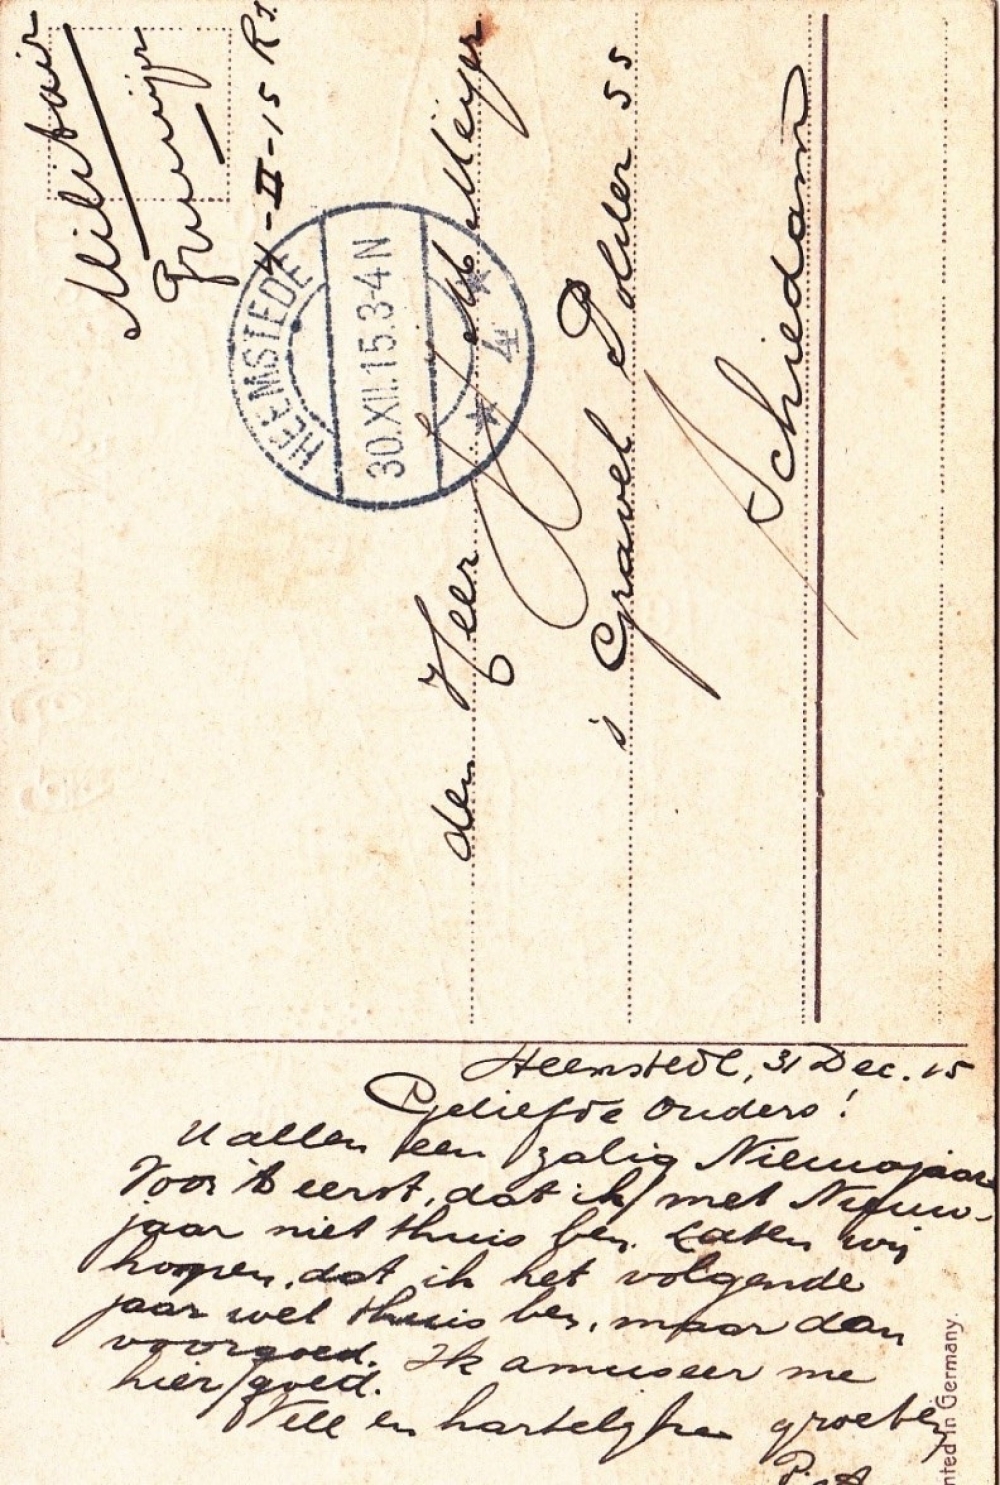 Militair
4-II-15 R.I.
HEEMSTEDE
30.XII.15.3-4N
4
den Heer Meijer
's Gravel Polder 55
Schiedam
Heemstede, 31 Dec. 15
Geliefde Ouders!
U allen een zalig Nieuwjaar
Voor 't eerst, dat ik met Nieuw-
jaar niet thuis ben. Laten wij
hopen, dat ik het volgende
jaar wel thuis ben, maar dan
voorgoed. Ik amuseer me
hier goed.
Vele en hartelijke groeten
nted in Germany.